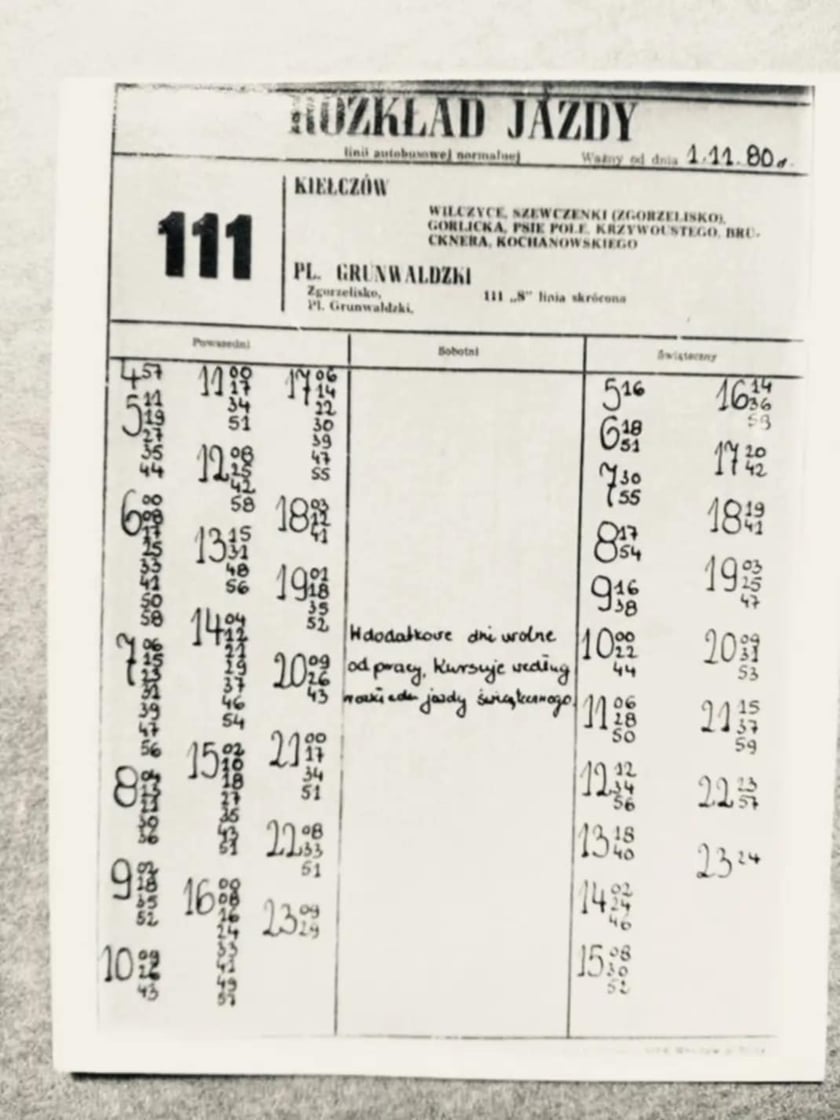 ROZKŁAD JAZDY
linii autobusowej normalnej Ważny od dnia 1.11.80r.
111
KIEŁCZÓW
WILCZYCE, SZEWCZENKI (ZGORZELISKO),
GORLICKA, PSIE POLE, KRZYWOUSTEGO, BRU-
CKNERA, KOCHANOWSKIEGO
PL. GRUNWALDZKI
Zgorzelisko,
Pl. Grunwaldzki,
111 „S" linia skrócona
Powszedni Sobotni Świąteczny
4 57
5 11 19 27 35 44
6 00 08 17 25 33 41 50 58
7 06 15 23 31 39 47 56
8
9 02 18 35 52
10 09 26 43
11 00 17 34 51
12 08 25 42 58
13 15 31 48 56
14 04 12 21 29 37 46 54
15 02 10 18 27 35 43 51
16 00 08 16 24 33 41 49 57
17 06 14 22 30 39 47 55
18 03 12 41
19 01 18 35 52
20 09 26 43
21 00 17 34 51
22 08 33 51
23 09 29
W dodatkowe dni wolne
od pracy, kursuje według
rozkładu jazdy świątecznego
5 16
6 18 51
7 30 55
8 17 54
9 16 38
10 00 22 44
11 06 28 50
12 12 34 56
13 18 40
14 02 24 46
15 08 30 52
16 14 36 58
17 20 42
18 19 41
19 03 25 47
20 09 31 53
21 15 37 59
22 23 57
23 24